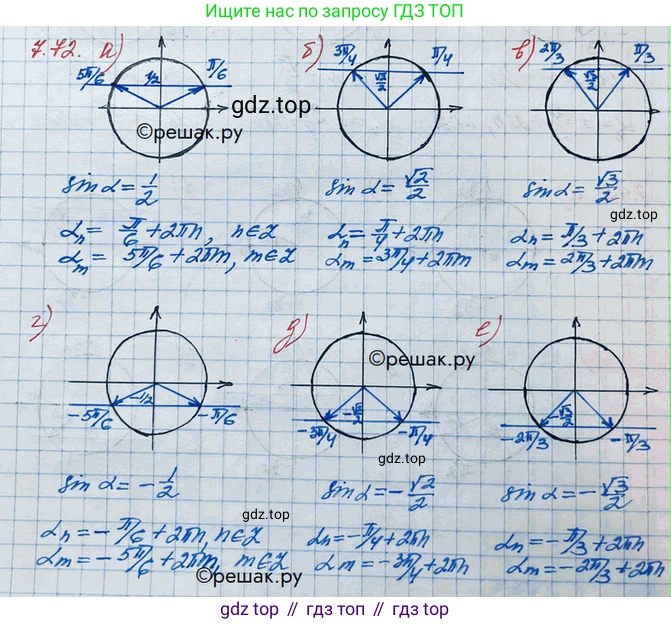 Ищите нас по запросу ГДЗ ТОП
7.72. а)
5π/6 1/2 π/6
gdz.top
©решак.ру
sin α = 1/2
αn = π/6 + 2πn, n∈Z
αm = 5π/6 + 2πm, m∈Z
б)
3π/4 √2/2 π/4
sin α = √2/2
αn = π/4 + 2πn
αm = 3π/4 + 2πm
в)
2π/3 √3/2 π/3
sin α = √3/2
gdz.top
αn = π/3 + 2πn
αm = 2π/3 + 2πm
г)
-1/2
-5π/6 -π/6
sin α = -1/2
gdz.top
αn = -π/6 + 2πn, n∈Z
αm = -5π/6 + 2πm, m∈Z
©решак.ру
д)
©решак.ру
-√2/2
-3π/4 -π/4
sin α = -√2/2
αn = -π/4 + 2πn
αm = -3π/4 + 2πn
е)
-√3/2
-2π/3 -π/3
sin α = -√3/2
αn = -π/3 + 2πn
αm = -2π/3 + 2πn
©решак.ру
gdz.top // гдз топ // гдз.top